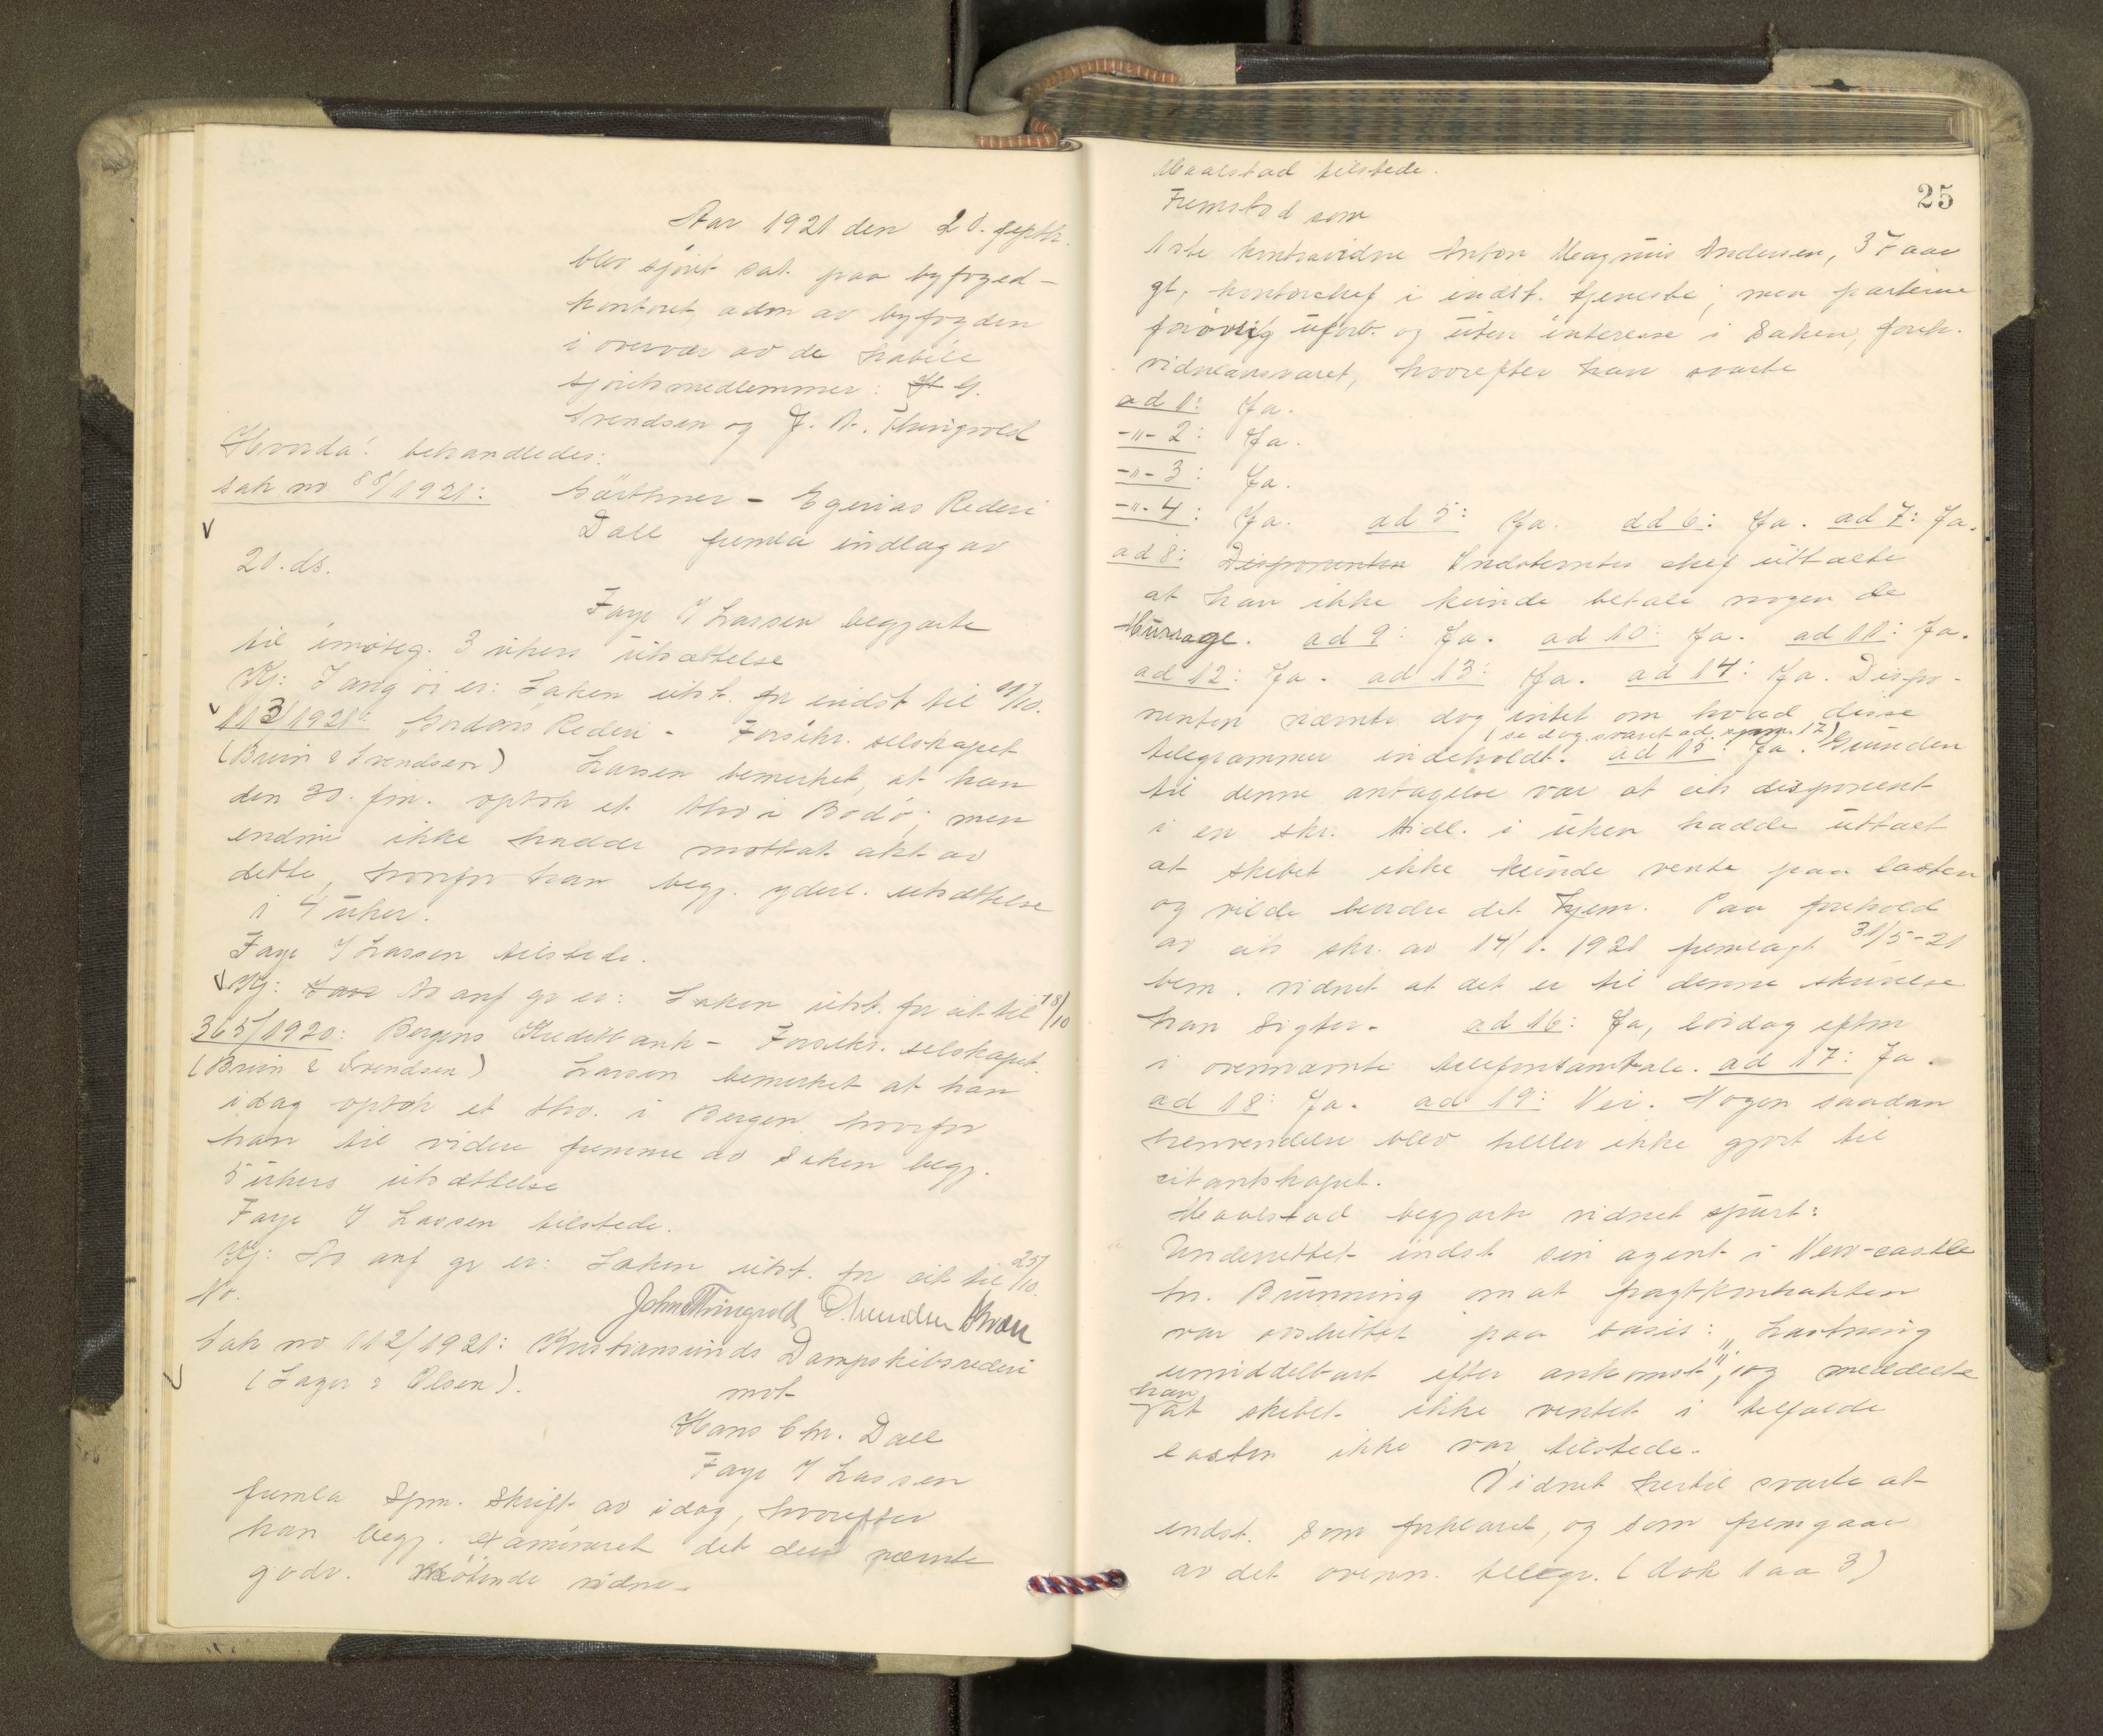 Aar 1921 den 20. septb.
blev sjöret sat paa byfoged-
kontoret adm av byfogden
i overvær av de habile
sjöretsmedlemmer: G.
Svendsen og J. A. Thingvold
Hvorda: behandledes:
sak no 88/1921: Gärthner - Egerias Rederi
Dall fremla indlæg av
20. ds.
Faye f Lassen begjærte
til imøteg. 3 ukers utsættelse
Kj: I ang öi er: Saken utst. for indst til 11/10.
113/1921: "Gordons" Rederi - Forsikr. selskapet
(Bruun & Svendsen) Larsen bemerket, at han
den 30. fm. optok et thv i Bodö; men
endnu ikke hadde mottat akt av
dette, hvorfor han begj. yderl. utsættelse
i 4 uker.
Faye f Lassen tilstede.
Kj: Av anf gr er: Saken utst. for cit til 18/10
365/1920: Bergens Kreditbank - Forsikr. selskapet.
(Bruun & Svendsen) Larsen bemerket at han
idag optok et thv. i Bergen hvorfor
han til videre fremme av saken begj.
5 ukers utsættelse
Faye f Lassen tilstede.
Kj: Av anf gr er: Saken utst. for cit til 25/10.
No.
John Thingvold G. Svendsen
Sak no 112/1921: Kristiansunds Dampskibsrederi
(Lager & Olsen).
mot
Hans Chr. Dall
Faye f Lassen
fremla spm. skrift av idag, hvorefter
han begj. examineret det deri nævnte
godv. mötende vidne.
25
Maalstad tilstede.
Fremstod som
1ste kontravidne Anton Magnus Andersen, 37 aar
gl, kontorchef i indst. tjeneste; men parterne
forövrig uforb. og uten interesse i saken, foreh.
vidneansvaret, hvorefter han svarte
ad 1: Ja.
-"- 2: Ja.
-"- 3: Ja.
-"- 4: Ja. ad 5: Ja. ad 6: Ja. ad 7: Ja.
ad 8: Disponenten Indstevntes chef uttalte
at han ikke kunde betale nogen de
murrage. ad 9: Ja. ad 10: Ja. ad 11: Ja.
ad 12: Ja. ad 13: Ja. ad 14: Ja. Dispo-
nenten nævnte dog intet om hvad disse
(se dog svaret ad spm. 17)
telegrammer indeholdt. ad 15: Ja. Grunden
til denne antagelse var at cits disponent
i en skr. tidl. i uken hadde uttalt
at skibet ikke kunde vente paa lasten
og vilde beordre det hjem. Paa forehold
av cits skr. av 14/1. 1921 fremlagt 31/5-21
bem. vidnet at det er til denne skrivelse
han sigter. ad 16: Ja, lördag eftm
i ovennævnte telefonsamtale. ad 17: Ja.
ad 18: Ja. ad 19: Nei. Nogen saadan
henvendelse blev heller ikke gjort til
citantskapet.
Maalstad begjærte vidnet spurt:
Underrettet indst sin agent i New-castle
hr. Brünning om at fragtkontrakten
var avsluttet paa basis: "Lastning
umiddelbart efter ankomst", og meddelte
han
at skibet ikke ventet i tilfælde
lasten ikke var tilstede.
Vidnet hertil svarte at
indst. som forklaret, og som fremgaar
av det ovenn. telegr. (dok 1 aa 3)